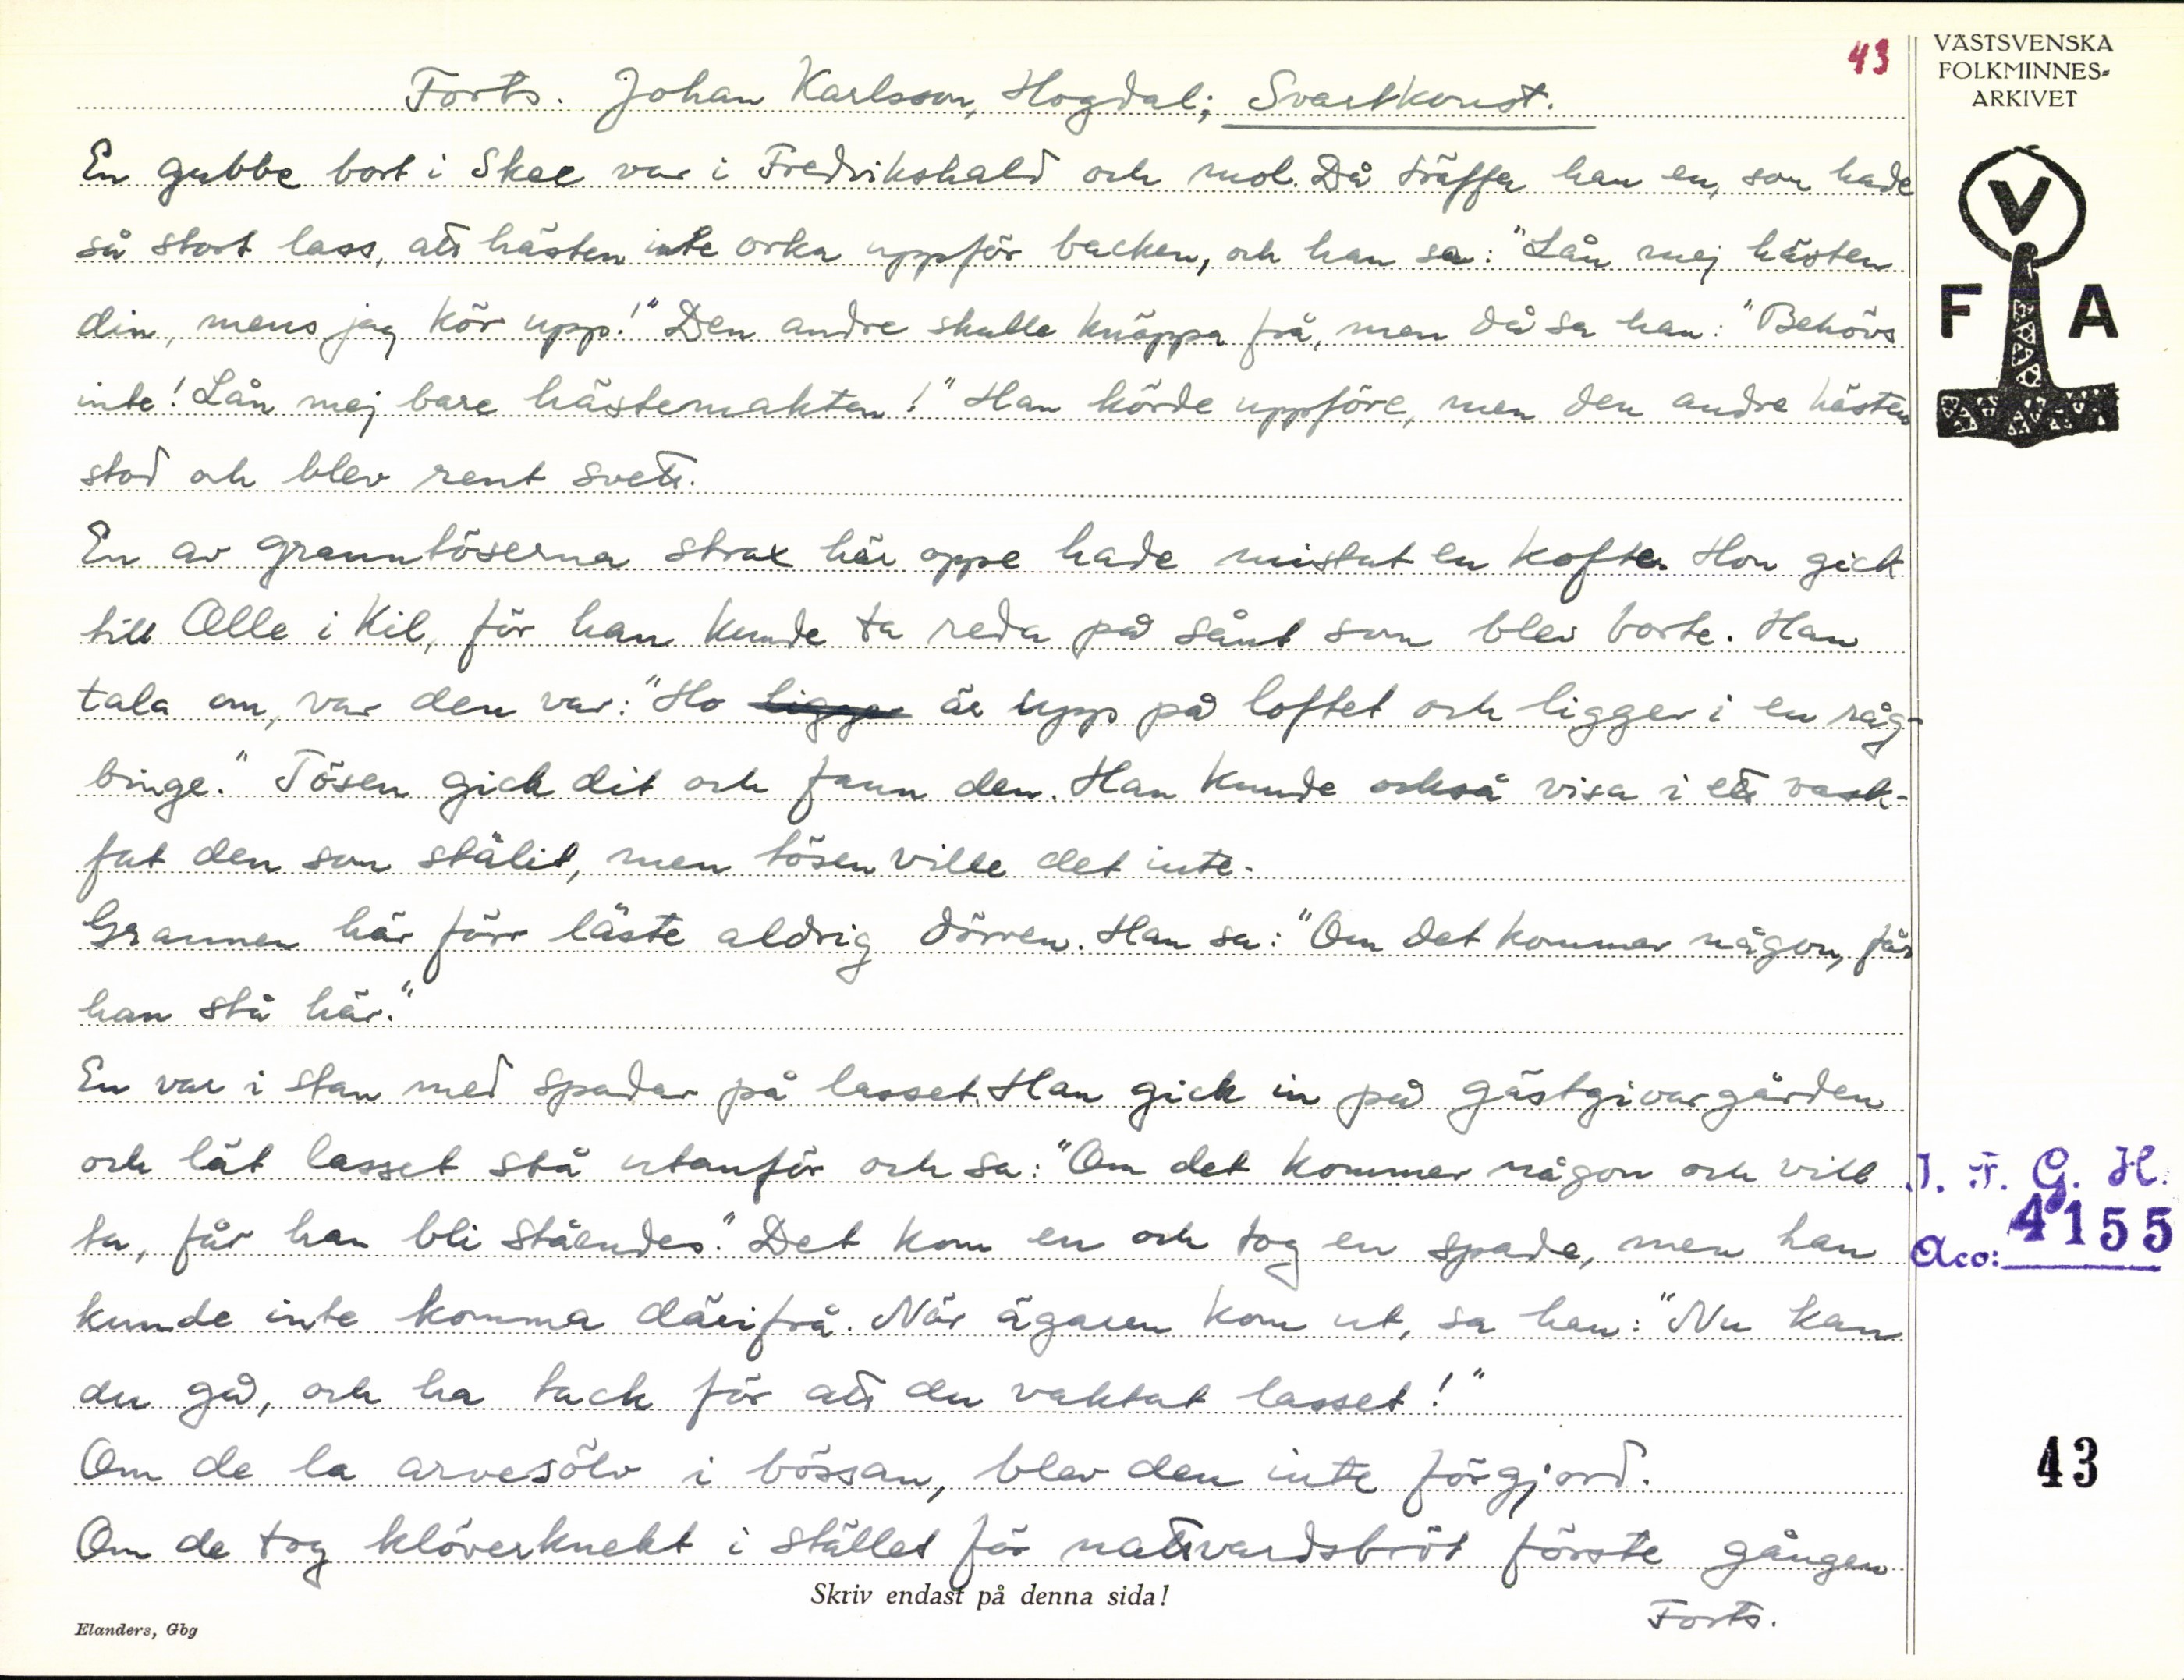 43
VÄSTSVENSKA
FOLKMINNES-
ARKIVET
V
F A
Forts. Johan Karlsson, Hogdal; Svartkonst.
En gubbe bort i Skee var i Fredrikshald och mol. Då träffa han en, som hade
så stort lass, att hästen inte orka uppför backen, och han sa: "Lån mej hästen
din, mens jag kör upp!" Den andre skulle knäppa frå, men då sa han: "Behövs
inte! Lån mej bare hästemakten!" Han körde uppföre, men den andre hästen
stod och blev rent svett.
En av granntöserna strax här oppe hade mistat en kofta. Hon gick
till Olle i Kil, för han kunde ta reda på sånt som blev borte. Han
tala om, var den var: "Ho ligger är upp på loftet och ligger i en råg-
binge." Tösen gick dit och fann den. Han kunde också visa i ett vask-
fat den som stälit, men tösen ville det inte.
Grannen här förr låste aldrig dörren. Han sa: "Om det kommer någon, får
han stå här."
En var i stan med spadar på lasset. Han gick in på gästgivargården
och lät lasset stå utanför och sa: "Om det kommer någon och vill
ta, får han bli ståendes." Det kom en och tog en spade, men han
kunde inte komma därifrå. När ägaren kom ut, sa han: "Nu kan
du gå, och ha tack för att du vaktat lasset!"
Om de la arvesölv i bössan, blev den inte förgjord.
Om de tog klöverknekt i stället för nattvardsbröt förste gången
Forts.
I. F. G. H.
Acc: 4155
43
Skriv endast på denna sida!
Elanders, Gbg